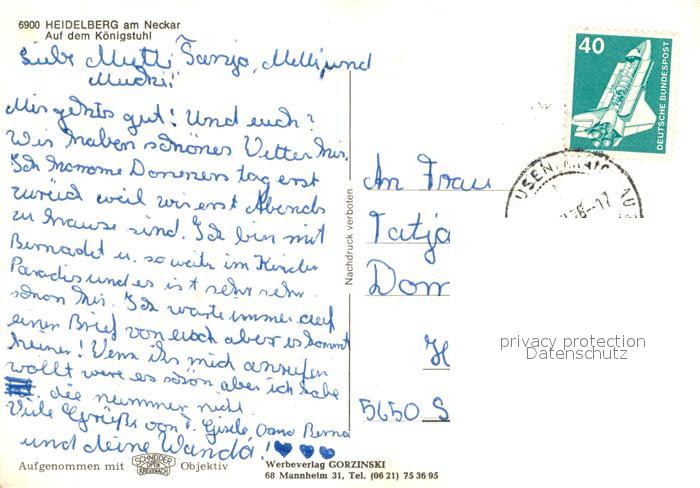 6900 HEIDELBERG am Neckar
Auf dem Königstuhl
Liebe Mutti, Tanja, Melli, und
Mucki!
Mir gehts gut! Und euch?
Wir haben schönes Vetter hir.
Ich komme Donners tag erst
zurück weil wir erst Abends
zu hause sind. Ich bin mit
Bernadet u. so weiter im Kinder
Paradis und es ist sehr sehr
schön hir. Ich warte immer auf
einen Brief von euch aber es kommt
keiner! Venn ihr mich anrufen
wollt were es schön aber ich habe
die nummer nicht.
Viele Grüße von T. Gisela Oana Berna
und deine Wanda!
Aufgenommen mit SCHNEIDER OPTIK KREUZNACH Objektiv
Werbeverlag GORZINSKI
68 Mannheim 31, Tel. (06 21) 75 36 95
Nachdruck verboten
40
DEUTSCHE BUNDESPOST
-17
An Frau
Tatja
Dom
H
5650 S
privacy protection
Datenschutz